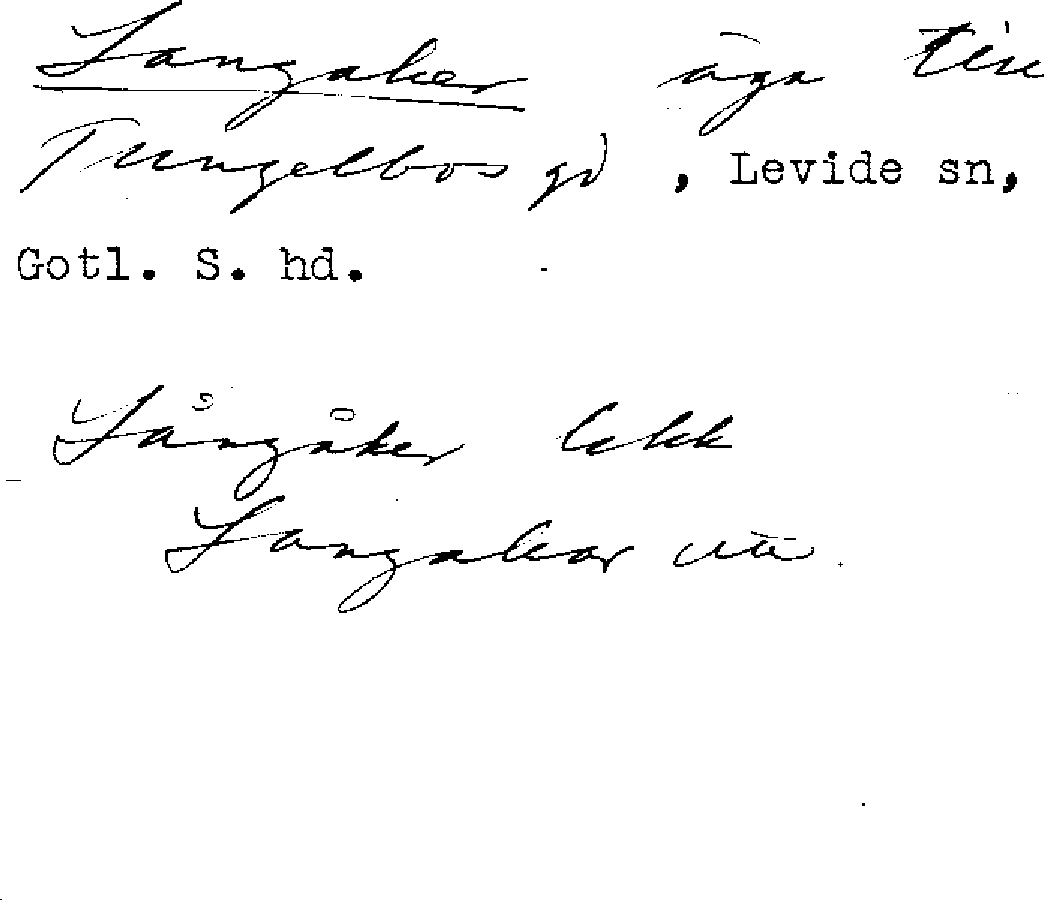 Langaker äga till
Tungelbos gd, Levide sn,
Gotl. S. hd.
Långåker
Langakar